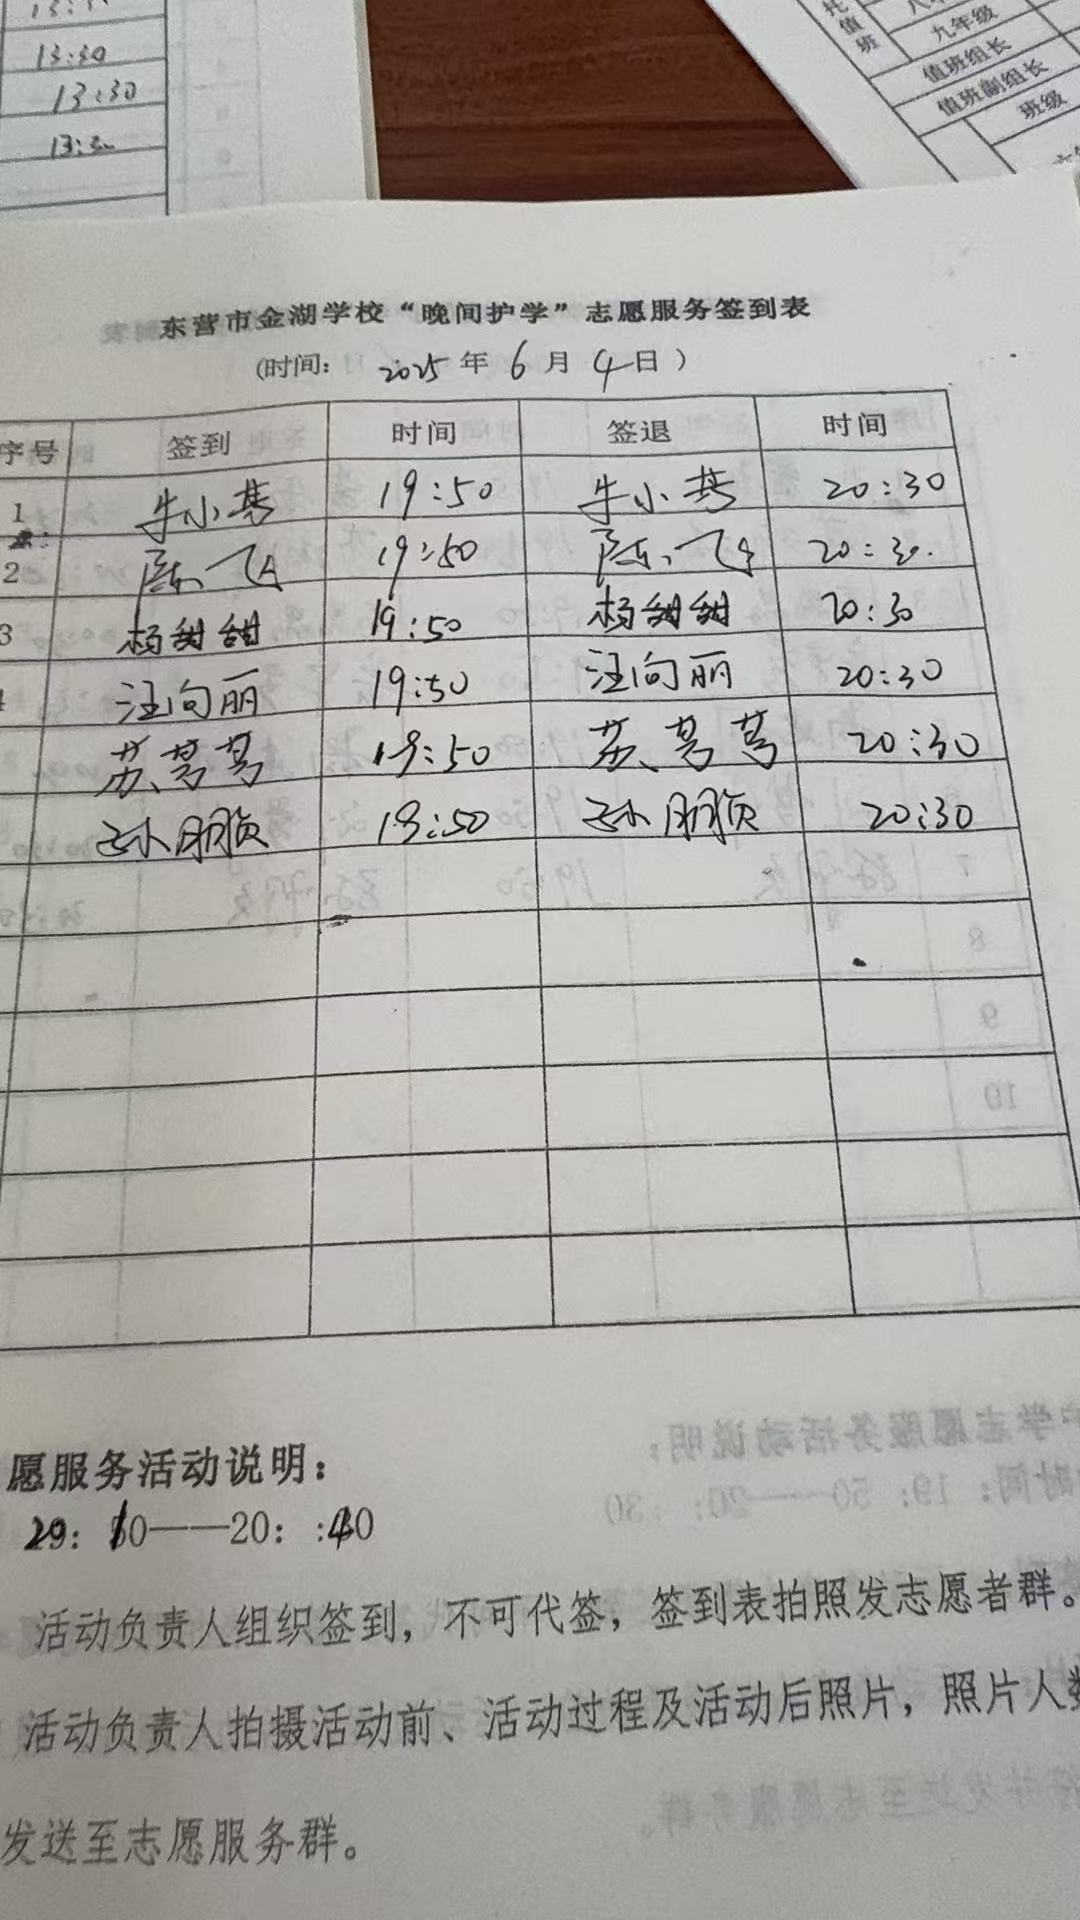 13:30
13:30
13:30
托值班
九年级
值班组长
值班副组长
班级
东营市金湖学校“晚间护学”志愿服务签到表
(时间: 2025 年 6 月 4 日 )
序号 签到 时间 签退 时间
1 牛小 19:50 牛小 20:30
2 陈飞 19:50 陈飞 20:30.
3 杨甜甜 19:50 杨甜甜 20:30
汪向丽 19:50 汪向丽 20:30
苏 19:50 苏 20:30
孙朋 19:50 孙朋 20:30
愿服务活动说明:
——20:
活动负责人组织签到，不可代签，签到表拍照发志愿者群。
活动负责人拍摄活动前、活动过程及活动后照片，照片人数
发送至志愿服务群。